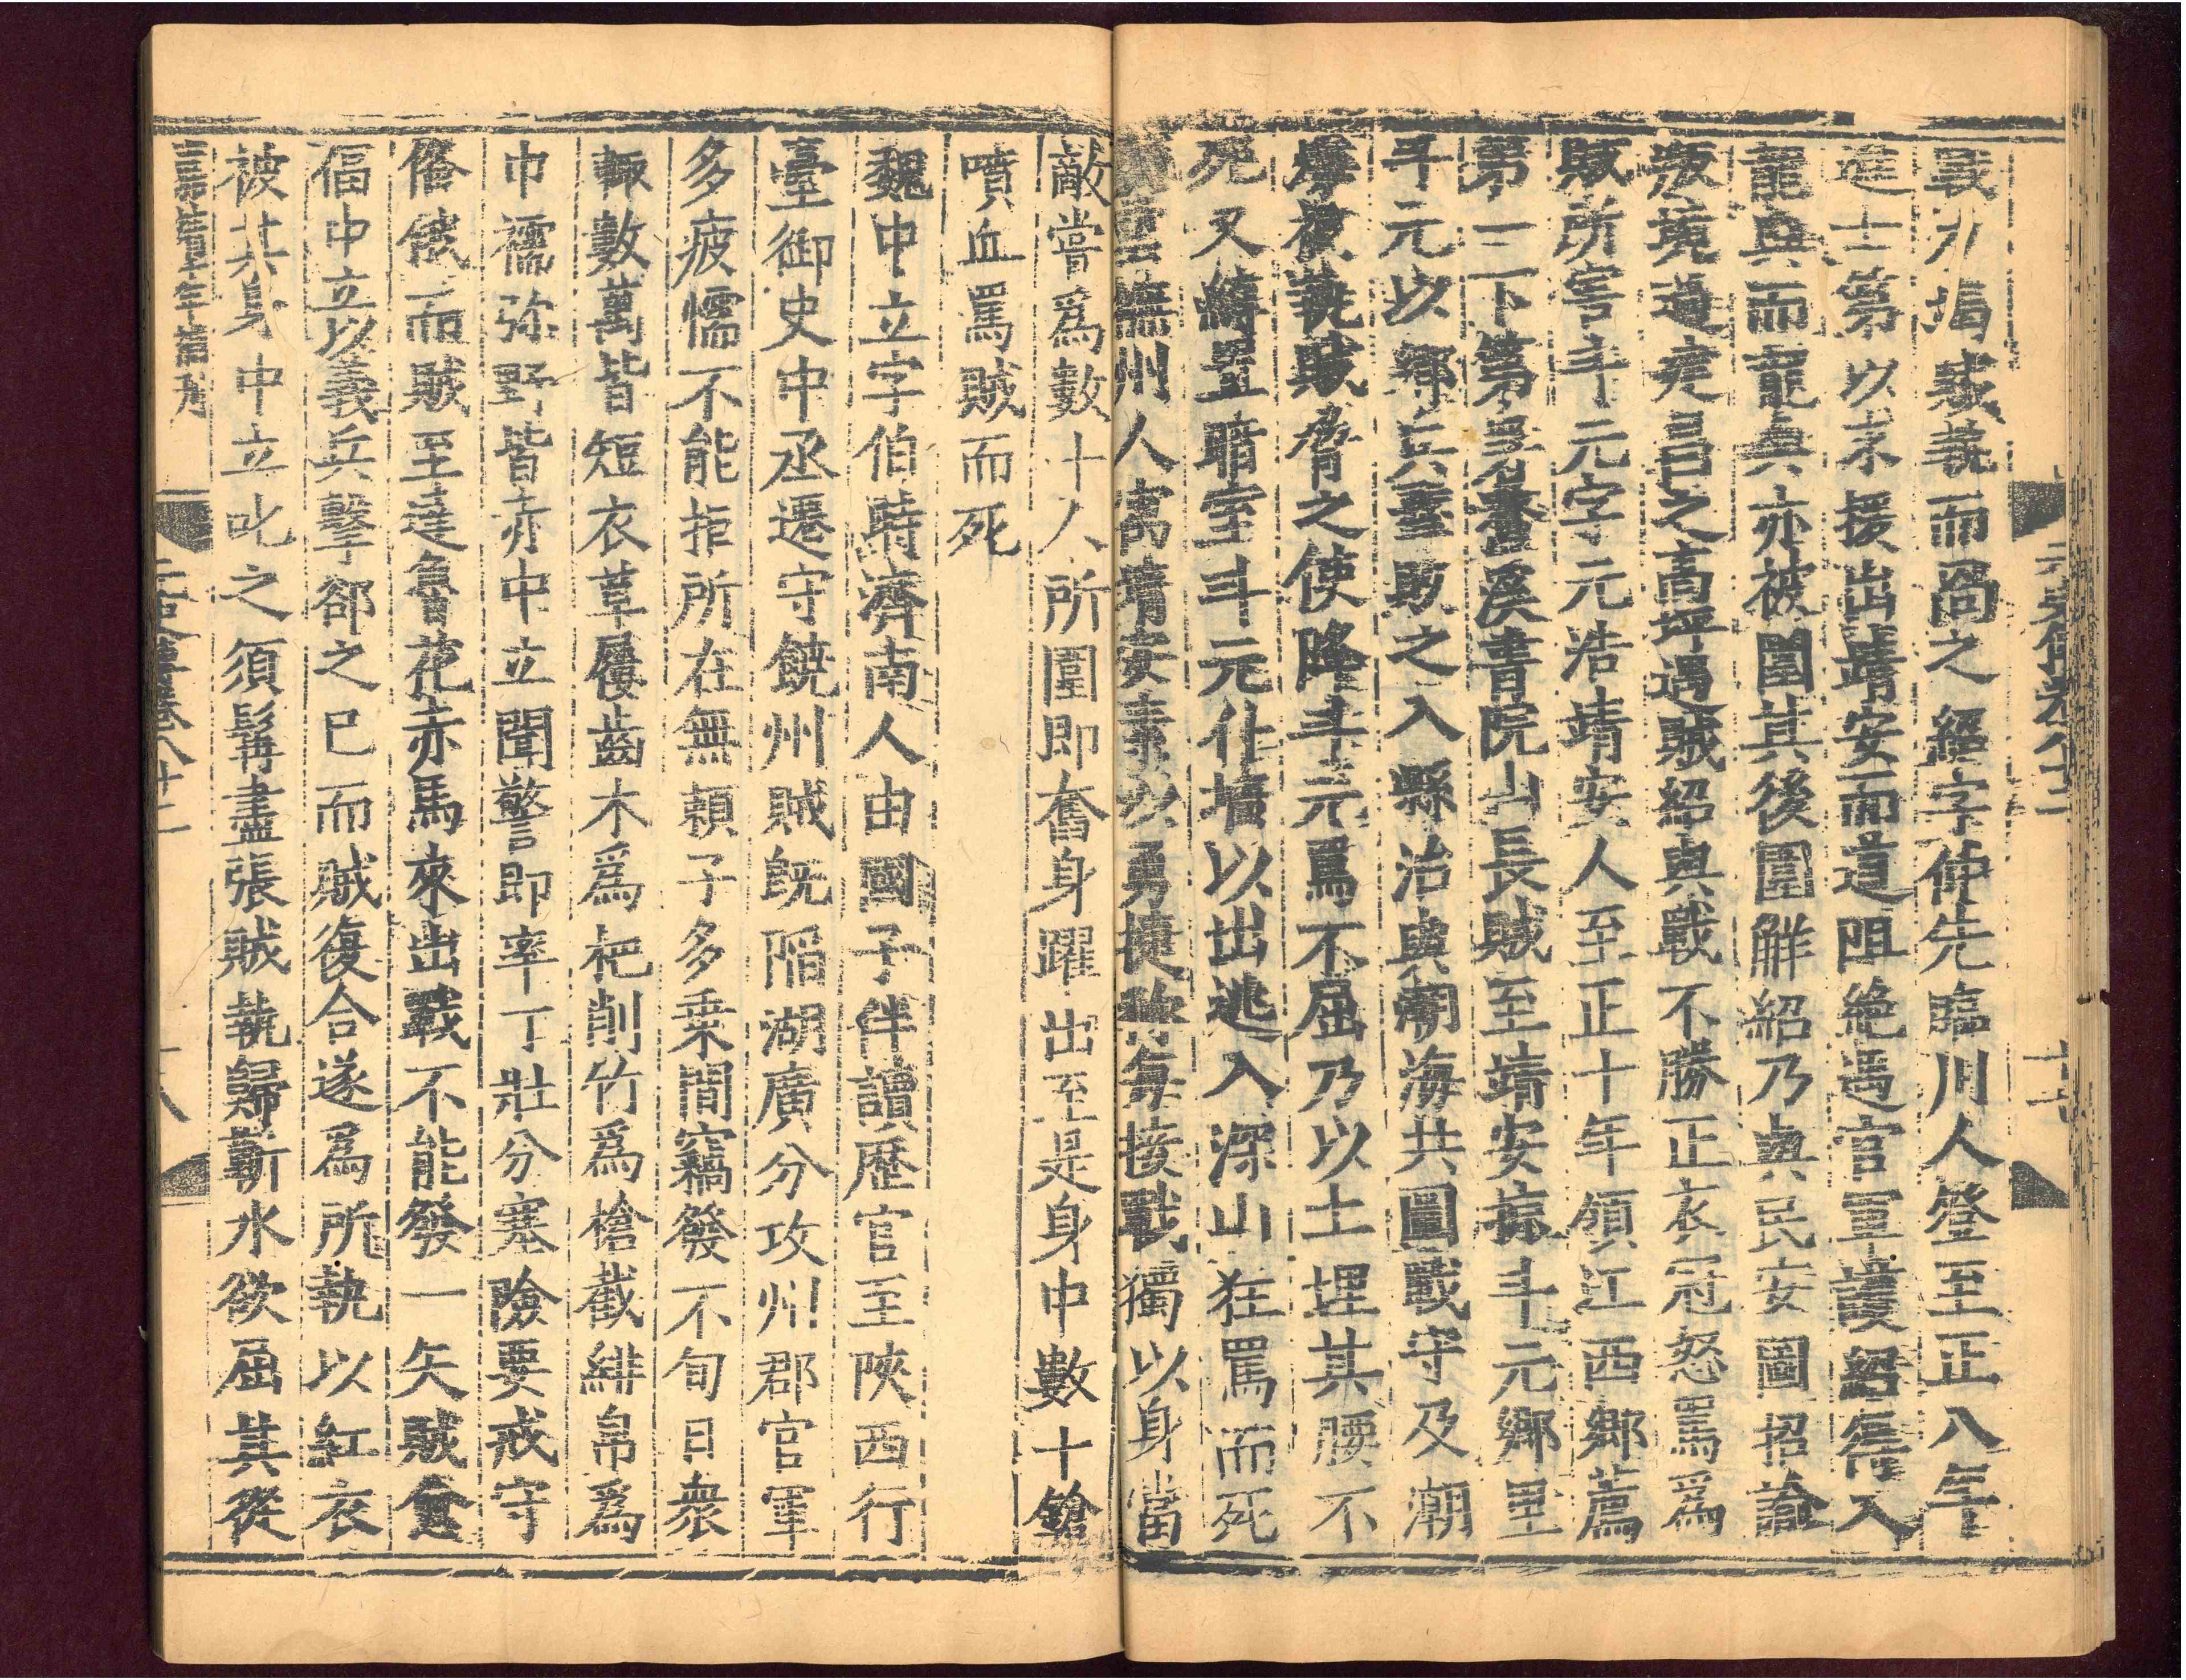 元史傳卷八十二
十七
義分搗賊執而咼之紹字仲先臨川人登至正八年
進士第以求援出靖安而道阻絶遇官軍護紹復入
龍興而龍興亦被圍其後圍解紹乃與民安圖招諭
叛境過建昌之高坪遇賊紹與戰不勝正衣冠怒罵爲
賊所害斗元字元浩靖安人至正十年領江西鄉薦
第一下第署鰲溪書院山長賊至靖安掠斗元鄉里
斗元以鄉兵擊敗之入縣治與潮海共圖戰守及潮
海被執賊脅之使降斗元罵不屈乃以土埋其腰不
死又縛置暗室斗元仆墻以出逃入深山狂罵而死
黃雲撫州人寓靖安素以勇捷稱每接戰獨以身當
敵嘗爲數十人所圍即奮身躍出至是身中數十鎗
噴血罵賊而死
魏中立字伯時濟南人由國子伴讀歷官至陝西行
臺御史中丞遷守饒州賊旣陷湖廣分攻州郡官軍
多疲懦不能拒所在無賴子多乗間竊發不旬日衆
輙數萬皆短衣草屨齒木爲杷削竹爲槍截緋帛爲
巾襦弥野皆赤中立聞警即率丁壯分塞險要戒守
俻俄而賊至達魯花赤馬來出戰不能發一矢賊愈
偪中立以義兵擊卻之已而賊復合遂爲所執以紅衣
被其身中立叱之須髯盡張賊執歸蘄水欲屈其從
嘉靖年補刊
元史傳卷八十二
十八